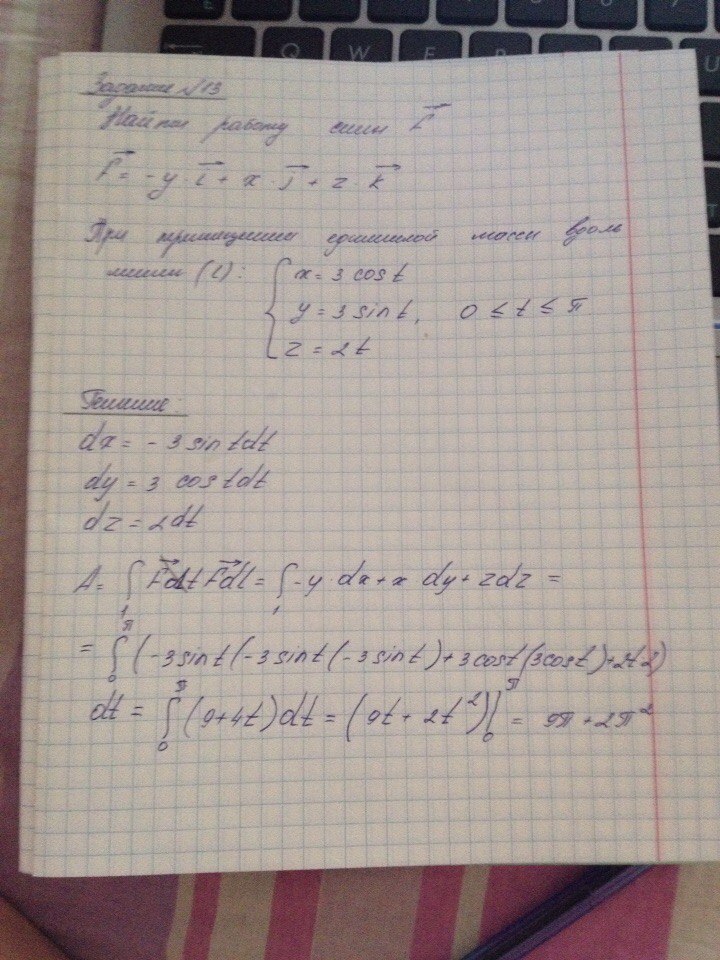 Q W E R
Задание №13
Найти работу силы F
F = -y · i + x · j + z · k
При перемещении единичной массы вдоль
линии (L): { x = 3 cos t
y = 3 sin t, 0 ≤ t ≤ π
z = 2t
Решение
dx = - 3 sin t dt
dy = 3 cos t dt
dz = 2dt
A = ∫ F dl = ∫ -y · dx + x dy + z dz =
= ∫₀^π (-3 sin t (-3 sin t (-3 sin t) + 3 cos t (3 cos t) + 2t 2)
dt = ∫₀^π (9 + 4t) dt = (9t + 2t²)|₀^π = 9π + 2π²